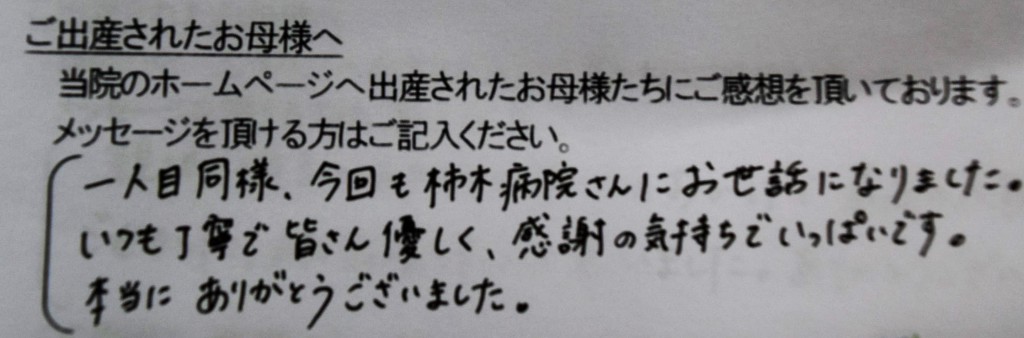 ご出産されたお母様へ
当院のホームページへ出産されたお母様たちにご感想を頂いております。
メッセージを頂ける方はご記入ください。
一人目同様、今回も柿木病院さんにお世話になりました。
いつも丁寧で皆さん優しく、感謝の気持ちでいっぱいです。
本当にありがとうございました。